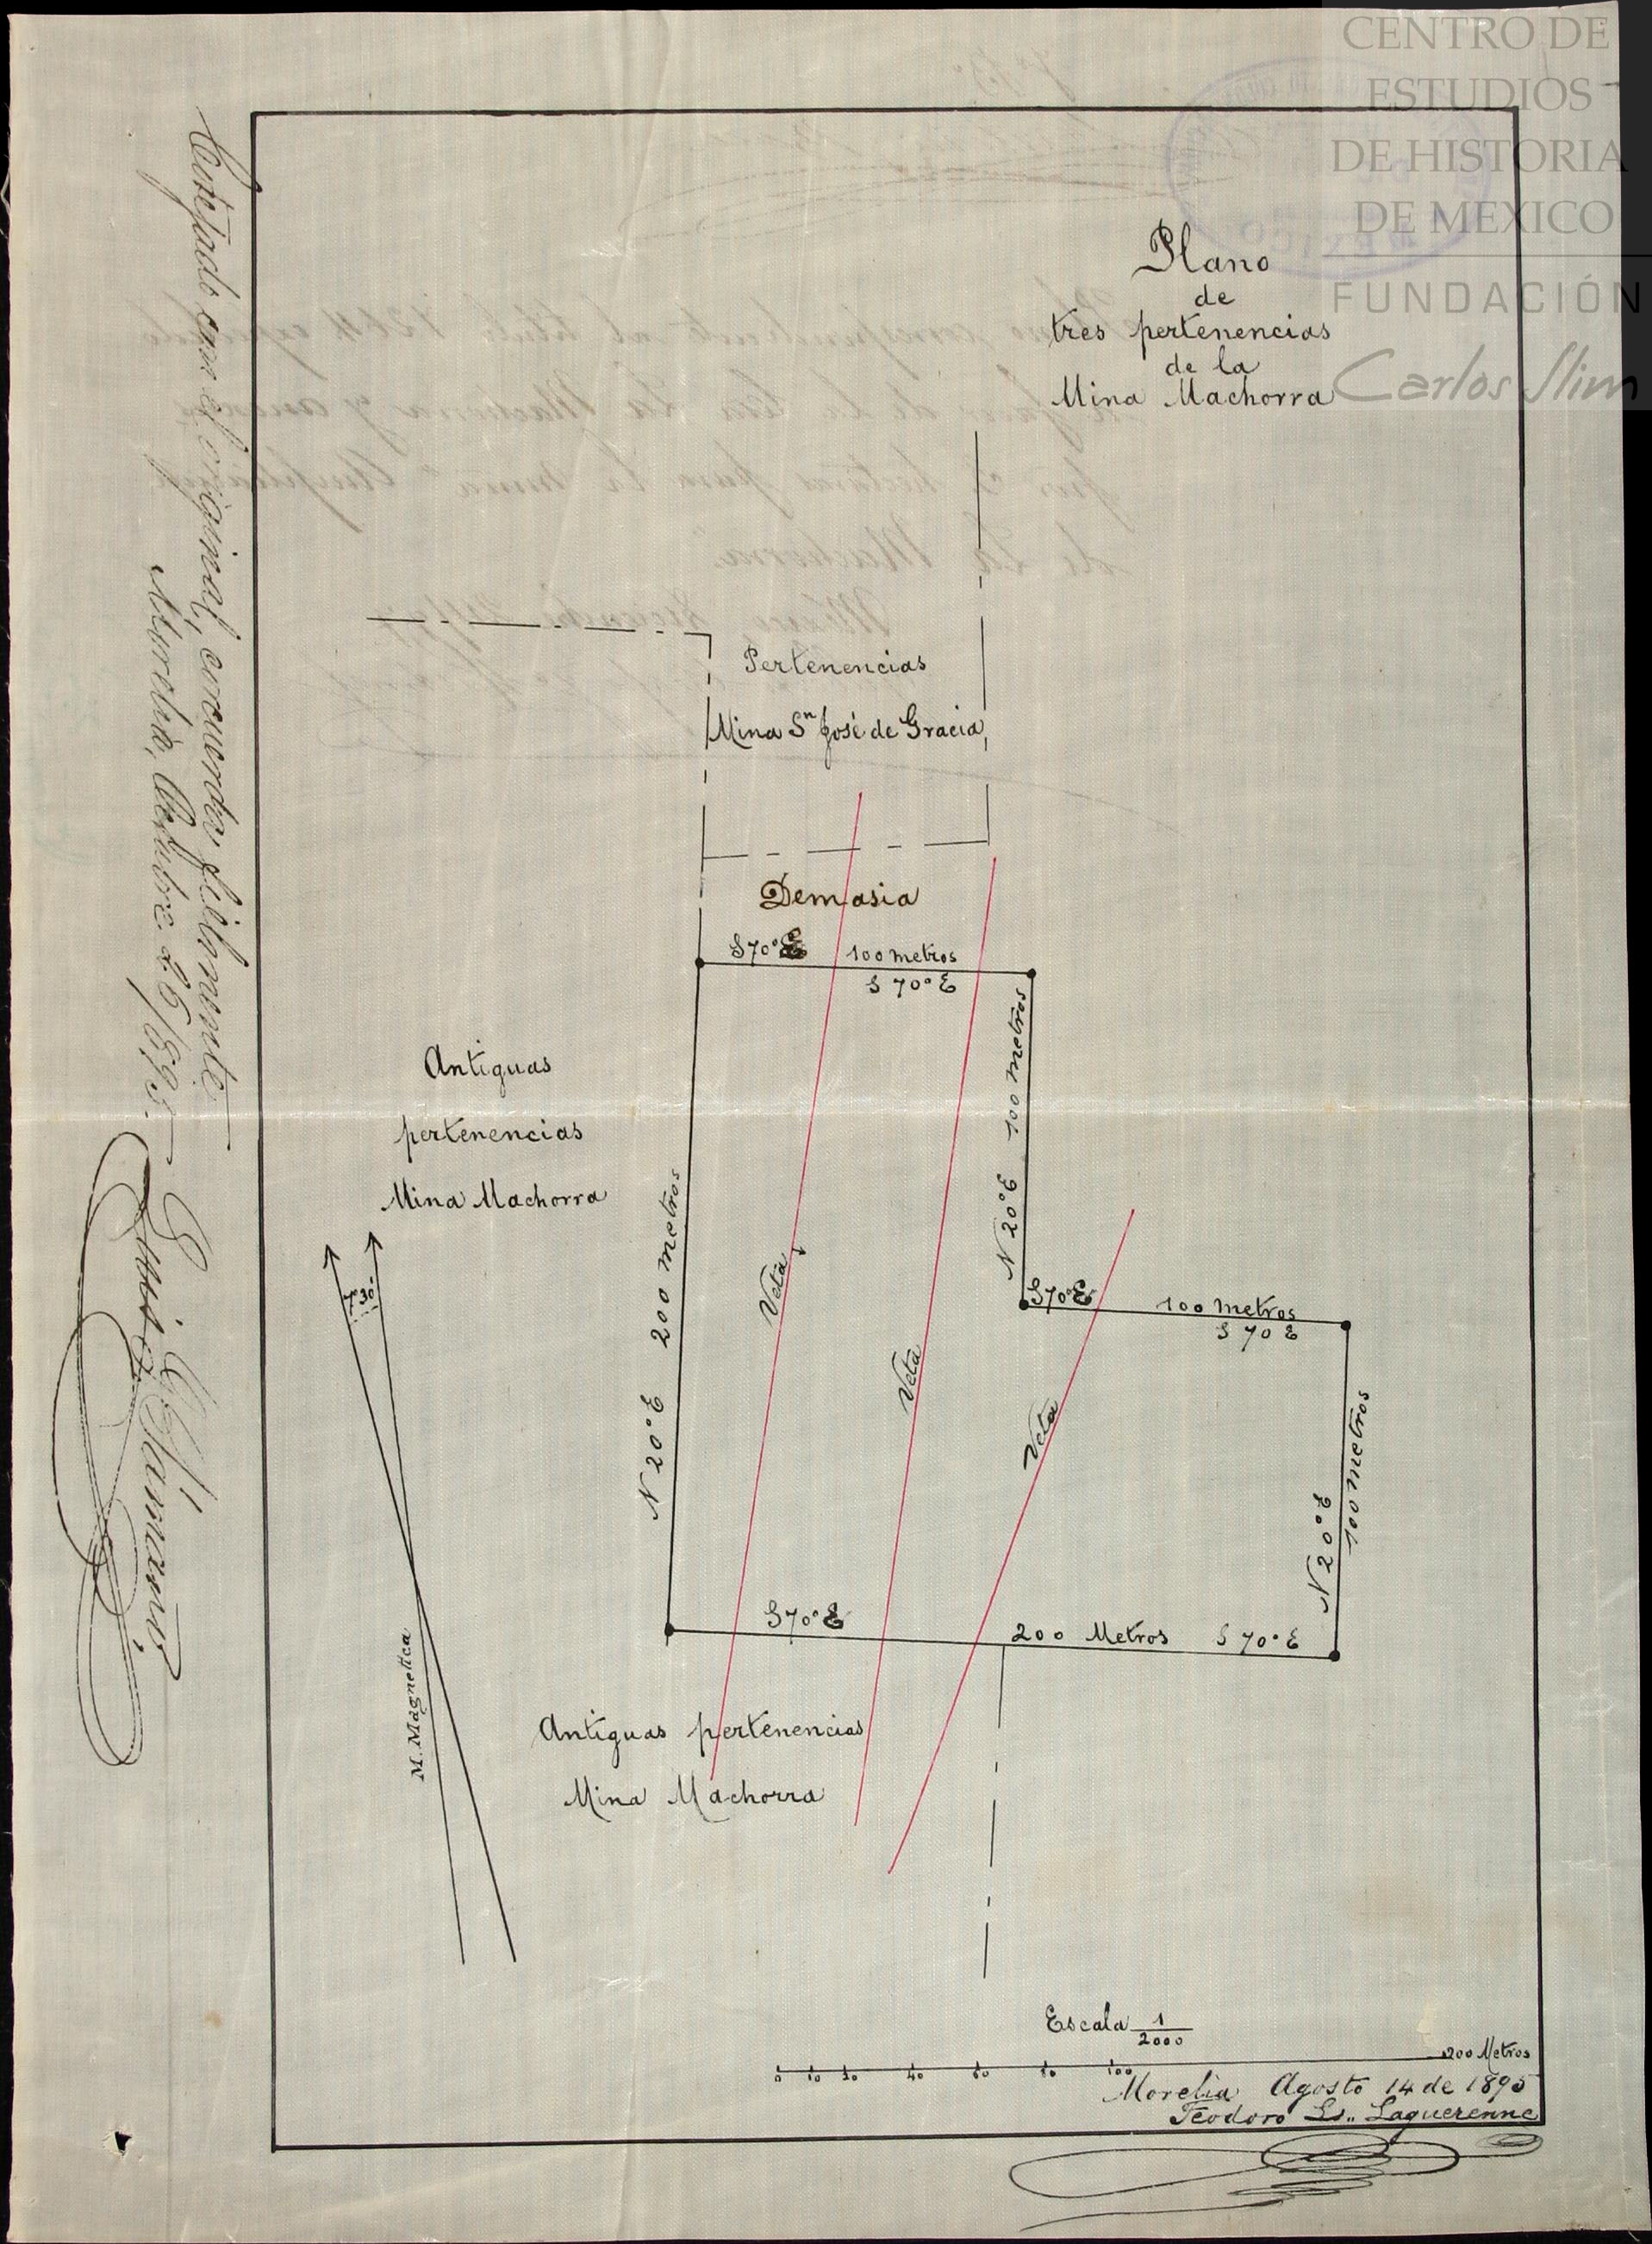 CENTRO DE
ESTUDIOS
DE HISTORIA
DE MEXICO
FUNDACIÓN
Carlos Slim
Plano
de
tres pertenencias
de la
Mina Machorra
Pertenencias
Mina Sn José de Gracia
Demasia
S 70° E 100 metros
S 70° E
N 20° E 100 metros
Antiguas
pertenencias
Mina Machorra
7°30'
N 20° E 200 metros
Veta
Veta
Veta
S 70° E 100 metros
S 70 E
N 20° E 100 metros
S 70° E 200 Metros S 70° E
M. Magnetica
Antiguas pertenencias
Mina Machorra
Escala 1/2000
0 10 20 40 60 80 100 200 Metros
Morelia Agosto 14 de 1895
Teodoro L. Laguerenne
Cotejado con el original, concuerda fielmente
Morelia, Octubre 26/895.
Luis G.